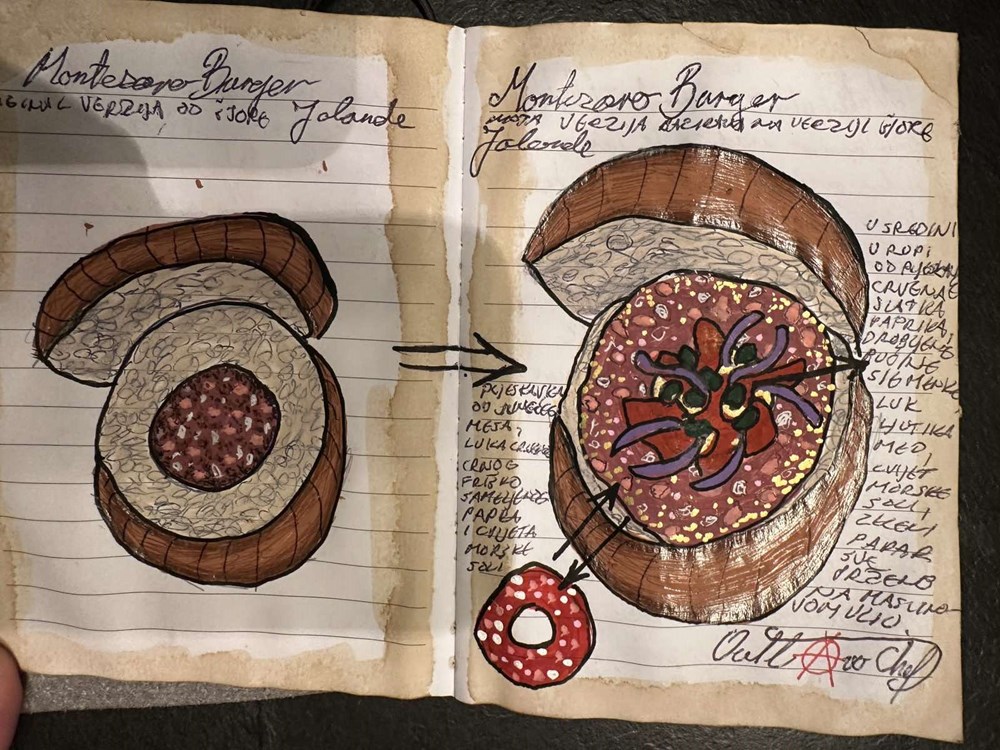 Montesoro Burger
VERZIJA OD ŠJORE Jolande
Montesoro Burger
VERZIJA BAZIRANA NA VERZIJI ŠJORE
Jolande
PLJESKAVICA
OD JUNEĆEG
MESA,
LUKA CRVENOG
CRNOG
FRIŠKO
SAMELJENOG
PAPRA
I CVIJETA
MORSKE
SOLI
U SREDINI
U RUPI
OD PLJESKAVICE
CRVENA
SLATKA
PAPRIKA,
BUČINE
SJEMENKE
LUK
LJUTIKA
MED,
CVIJET
MORSKE
SOLI,
ZELENI
PAPAR
SVE
PRŽENO
NA MASLINO-
VOM ULJU
Outlaw Chef